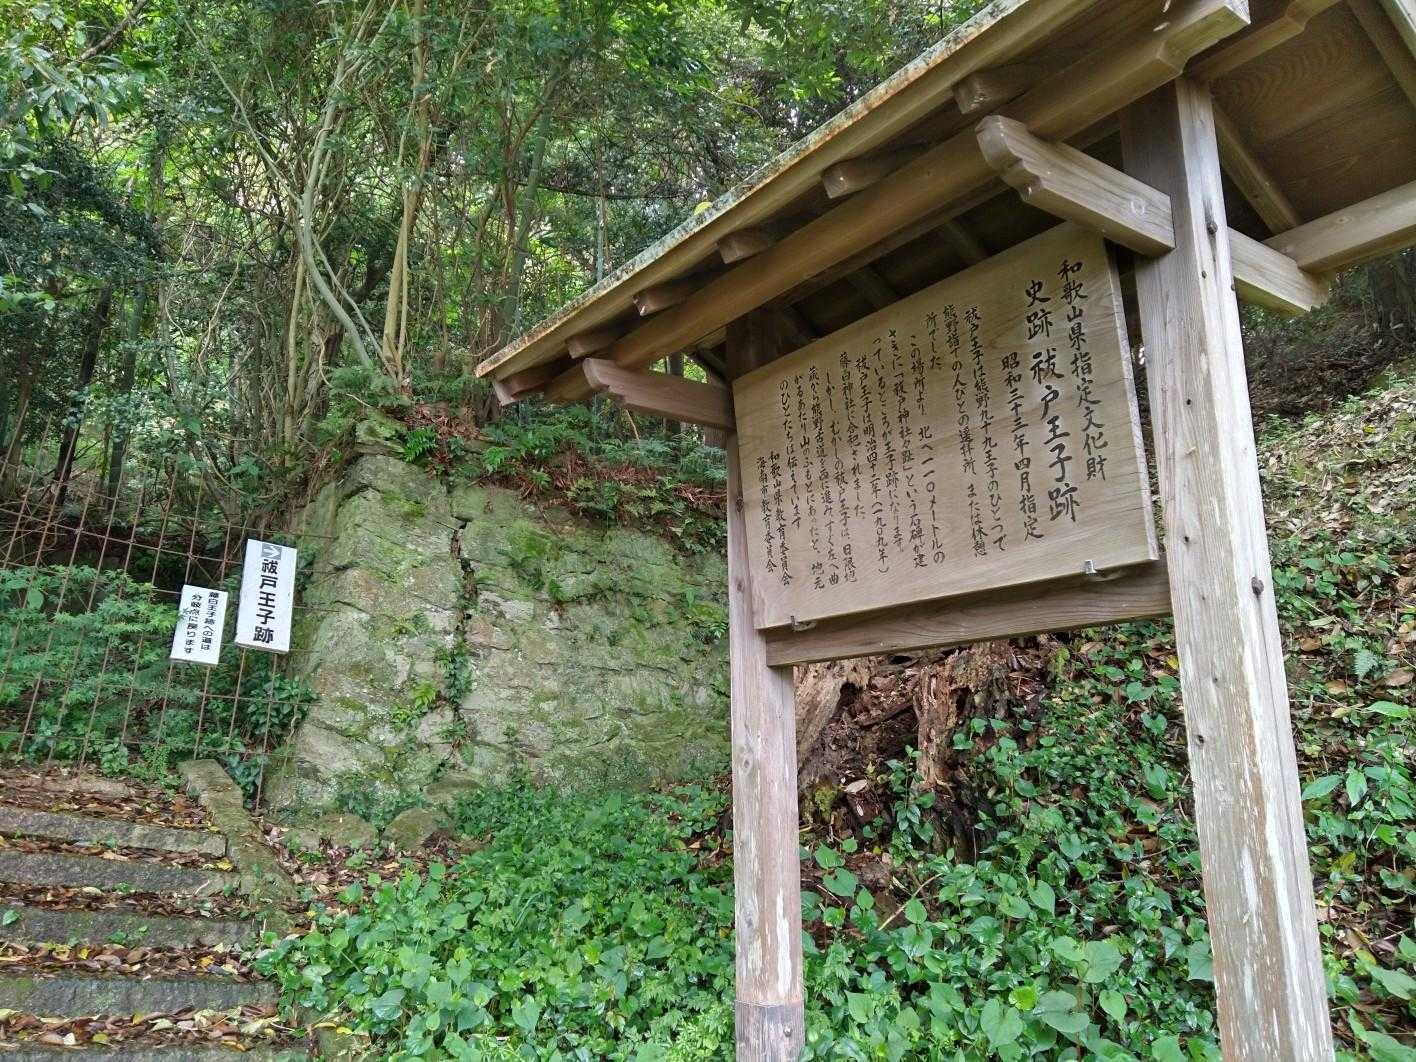 和歌山県指定文化財
史跡 祓戸王子跡
昭和三十三年四月指定
祓戸王子は熊野九十九王子のひとつで
熊野詣での人びとの遥拝所、または休憩
所でした。
この場所より、北へ一一〇メートルの
さきに「祓戸神社趾」という石碑が建
っているところが王子跡になります。
祓戸王子は明治四十二年(一九〇九年)
藤白神社に合祀されました。
しかし、むかしの祓戸王子は、日限地
蔵から熊野古道を西に進みすぐ左へ曲
がるあたり山のふもとにあったと、地元
のひとたちは伝えています
和歌山県教育委員会
海南市教育委員会
祓戸王子跡
藤白王子跡への道は
分岐点に戻ります